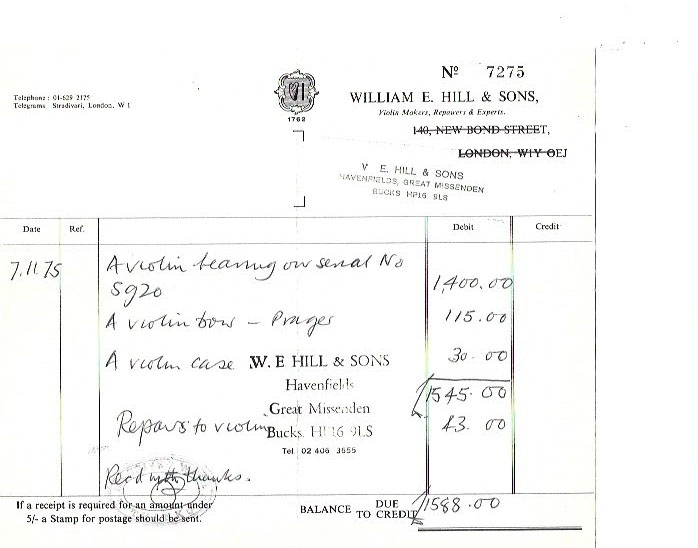 Nº 7275
Telephone : 01-629 2175
Telegrams Stradivari, London, W 1
1762
WILLIAM E. HILL & SONS,
Violin Makers, Repairers & Experts.
140, NEW BOND STREET,
LONDON, W1Y OEJ
E. HILL & SONS
HAVENFIELDS, GREAT MISSENDEN
BUCKS HP16 9LS
Date Ref. Debit Credit
7.11.75 A violin bearing our serial No
S920 1,400.00
A violin bow – Prager 115.00
A violin case 30.00
W. E HILL & SONS
Havenfields 1545.00
Great Missenden
Repairs to violin 43.00
Bucks. HP16 9LS
Tel. 02 406 3655
Recd with thanks.
If a receipt is required for an amount under
5/- a Stamp for postage should be sent.
BALANCE DUE TO CREDIT 1588.00